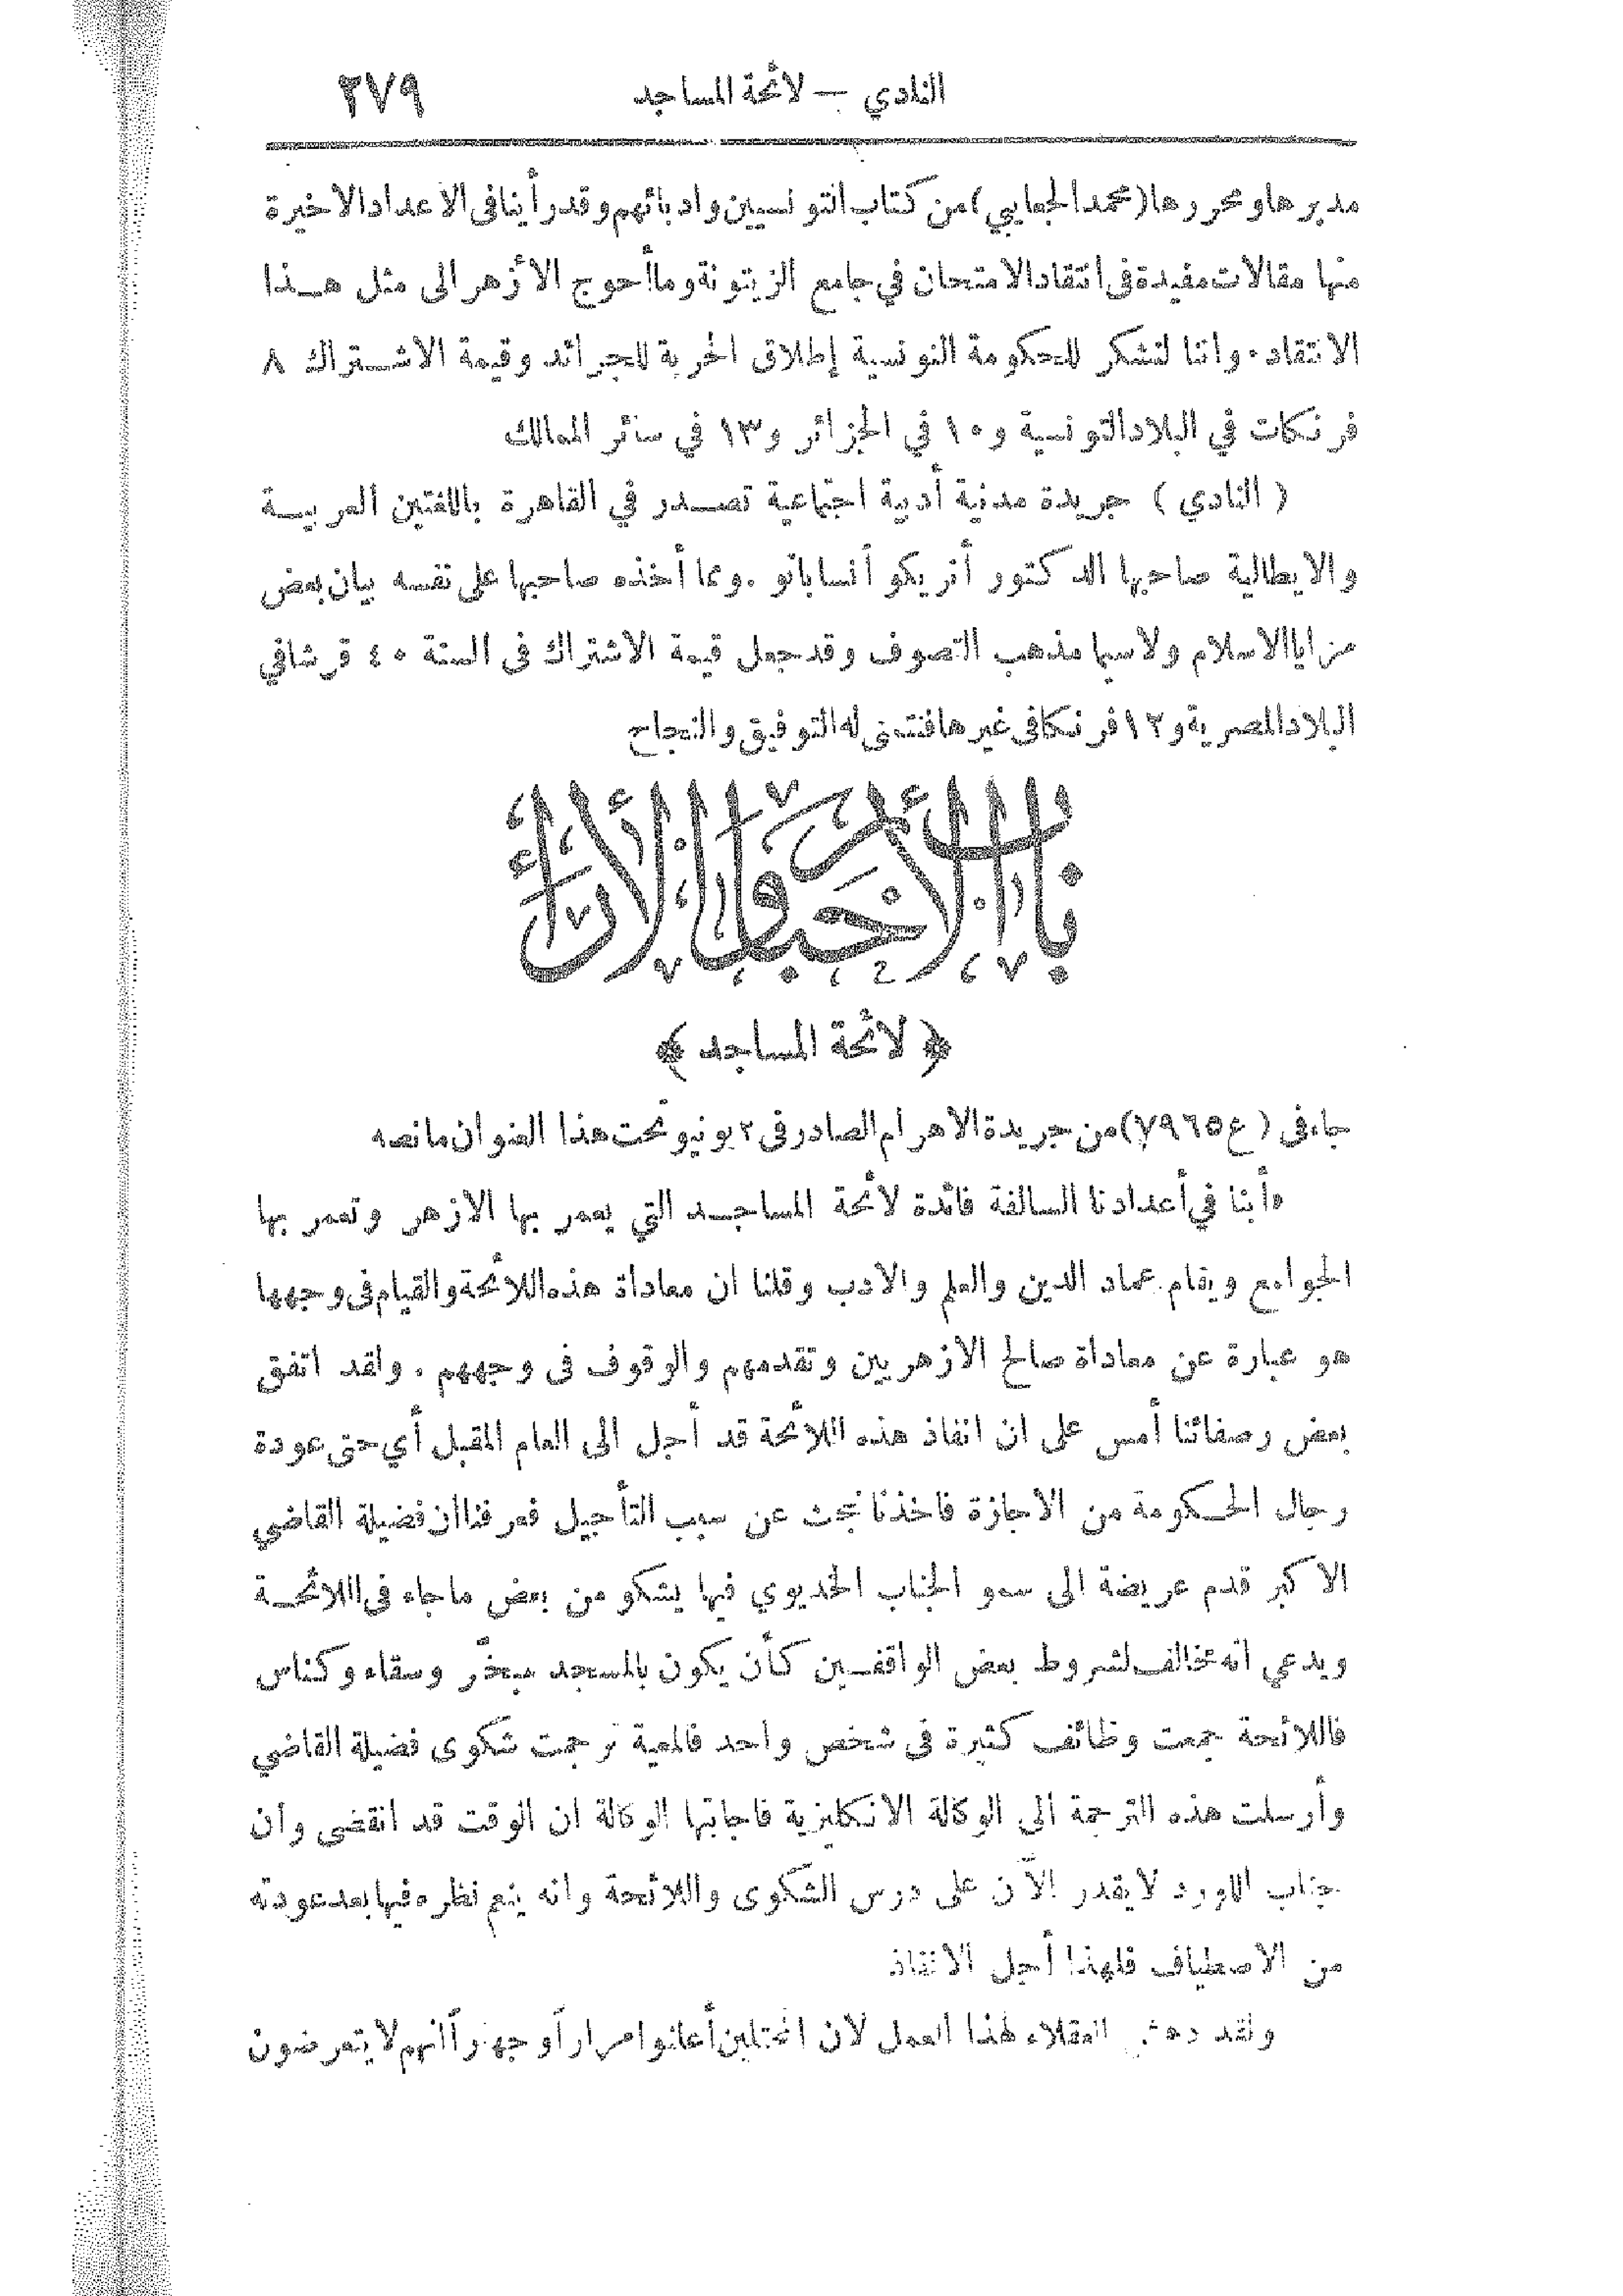 النادي — لائحة المساجد ٢٧٩
مديرها ومحررها (محمد الجعايبي) من كتاب التونسيين وادبائهم وقد رأينا في الاعداد الاخيرة
منها مقالات مفيدة في انتقاد الامتحان في جامع الزيتونة وما أحوج الأزهر الى مثل هذا
الانتقاد. واننا لنشكر للحكومة التونسية إطلاق الحرية للجرائد وقيمة الاشتراك ٨
فرنكات في البلاد التونسية و١٠ في الجزائر و١٣ في سائر الممالك
( النادي ) جريدة مدنية أدبية اجتماعية تصدر في القاهرة باللغتين العربية
والايطالية صاحبها الدكتور أنريكو أنساباتو . ومما أخذه صاحبها على نفسه بيان بعض
مزايا الاسلام ولاسيما مذهب التصوف وقد جعل قيمة الاشتراك في السنة ٤٠ قرشا في
البلاد المصرية و١٢ فرنكا في غيرها فنتمنى له التوفيق والنجاح
باب الأخبار والآراء
﴿ لائحة المساجد ﴾
جاء في (ع ٧٩٦٥) من جريدة الاهرام الصادر في ٢ يونيو تحت هذا العنوان ما نصه
«أبنا في أعدادنا السالفة فائدة لائحة المساجد التي يعمر بها الازهر وتعمر بها
الجوامع ويقام عماد الدين والعلم والادب وقلنا ان معاداة هذه اللائحة والقيام في وجهها
هو عبارة عن معاداة صالح الازهريين وتقدمهم والوقوف في وجههم . ولقد اتفق
بعض رصفائنا أمس على ان انفاذ هذه اللائحة قد أجل الى العام المقبل أي حتى عودة
رجال الحكومة من الاجازة فاخذنا نبحث عن سبب التأجيل فعرفنا أن فضيلة القاضي
الاكبر قدم عريضة الى سمو الجناب الخديوي فيها يشكو من بعض ما جاء في اللائحة
ويدعي انه مخالف لشروط بعض الواقفين كأن يكون بالمسجد مبخّر وسقاء وكناس
فاللائحة جمعت وظائف كثيرة في شخص واحد فالمعية ترجمت شكوى فضيلة القاضي
وأرسلت هذه الترجمة الى الوكالة الانكليزية فاجابتها الوكالة ان الوقت قد انقضى وأن
جناب اللورد لا يقدر الآن على درس الشكوى واللائحة وانه ينعم نظره فيها بعد عودته
من الاصطياف فلهذا أجل الانفاذ
ولقد دهش العقلاء لهذا العمل لان المحتلين أعلنوا مراراً وجهراً انهم لا يتعرضون